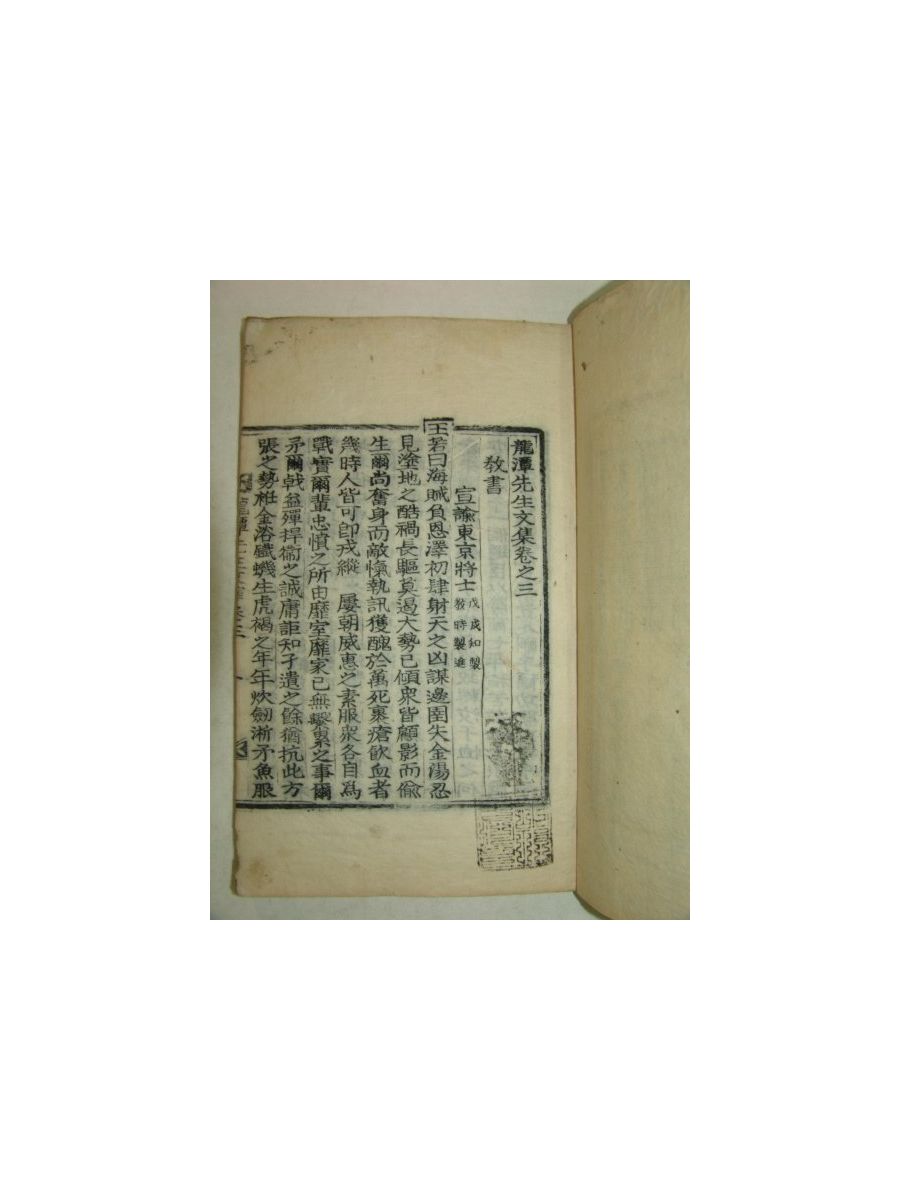 龍潭先生文集卷之三
敎書
宣諭東京將士 戊戌知製
敎時製進
王若曰海賊負恩澤初肆射天之凶謀邊圉失金湯忍
見塗地之酷禍長驅莫遏大勢已傾衆皆顧影而偸
生爾尚奮身而敵愾執訊獲醜於萬死裹瘡飮血者
幾時人皆可卽戎縱 屢朝威惠之素服衆各自爲
戰實爾輩忠憤之所由靡室靡家已無繫累之事爾
矛爾戟益殫捍衛之誠庸詎知孑遺之餘猶抗此方
張之勢衽金浴鐵蟣生虎裼之年年炊劒淅矛魚服